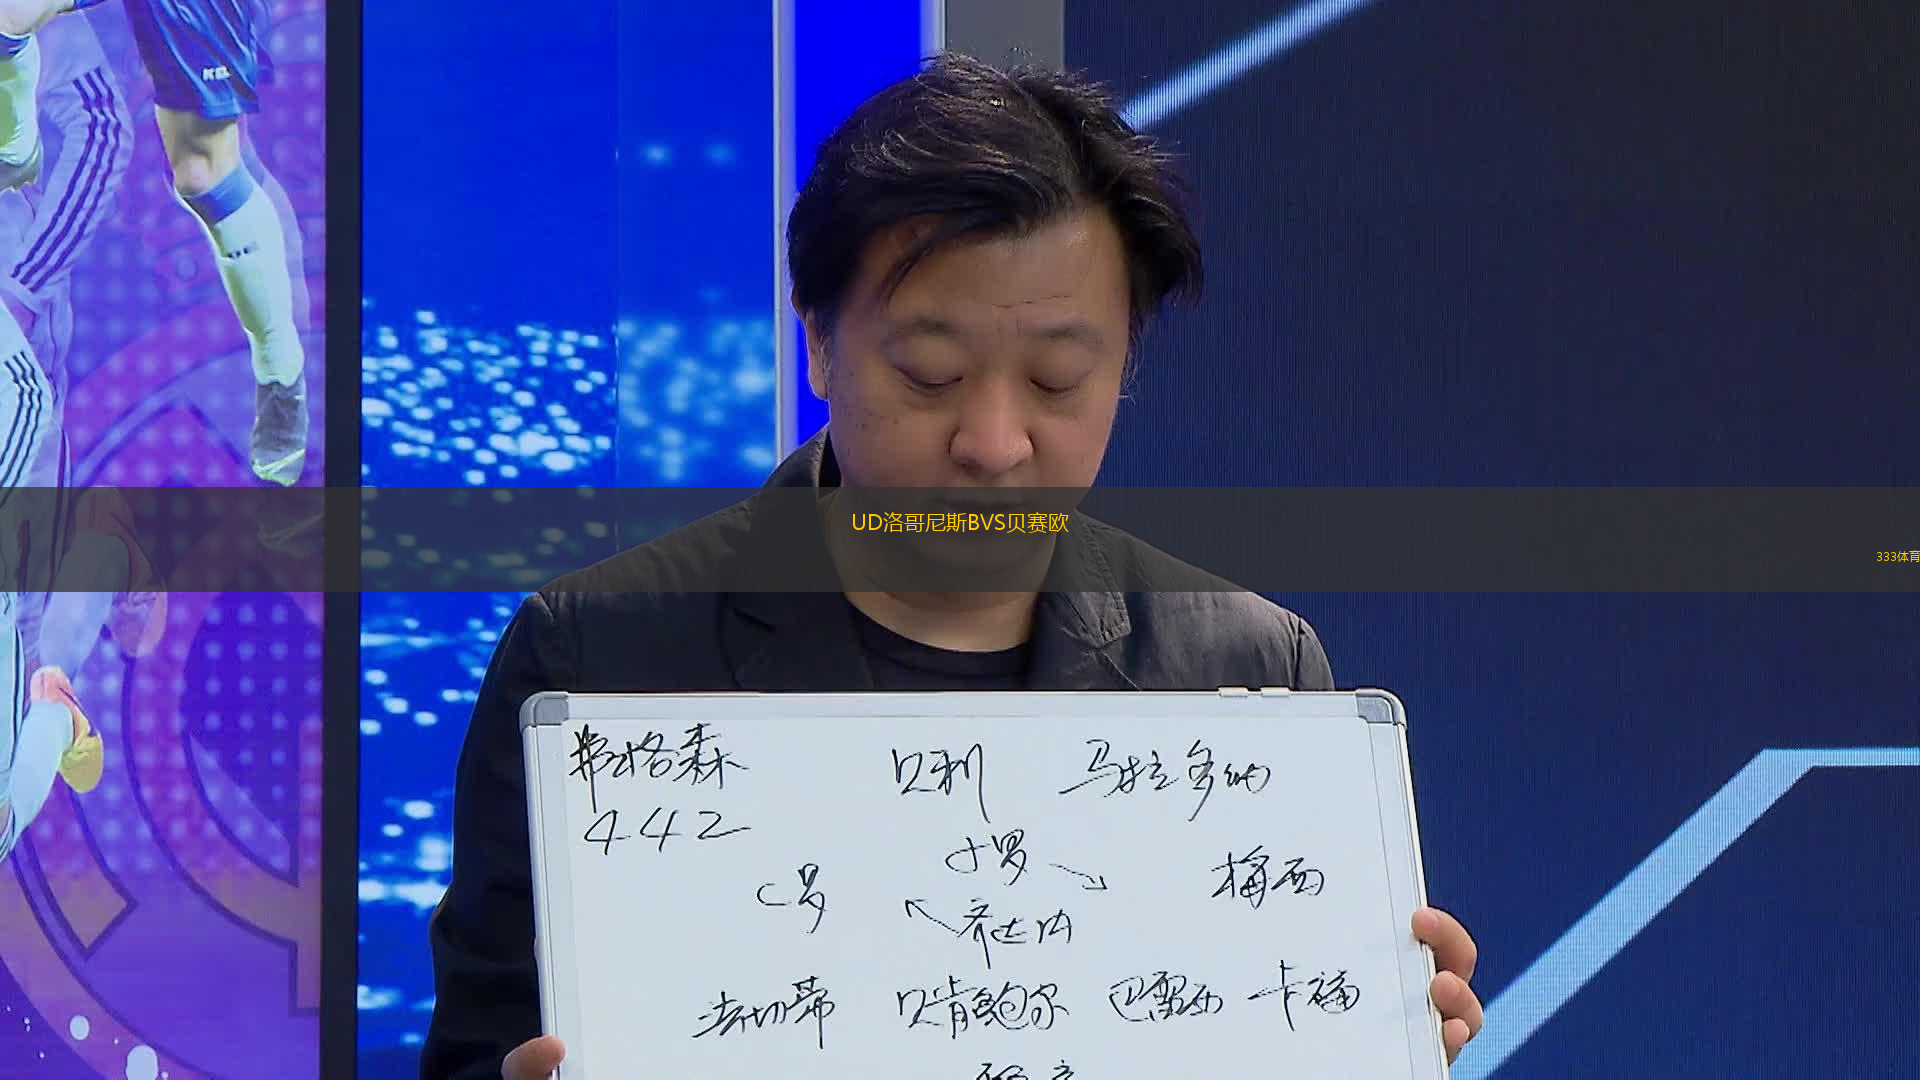 UD洛哥尼斯BVS贝赛欧
333体育
弗格森 贝利 马拉多纳
442
小罗
C罗 梅西
齐达内
法切蒂 贝肯鲍尔 巴雷西 卡福